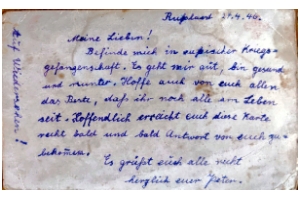 Rußland 21.4.46.
Meine Lieben!
Befinde mich in russischer Kriegs-
gefangenschaft. Es geht mir gut, bin gesund
und munter. Hoffe auch von euch allen
das Beste, daß ihr noch alle am Leben
seit. Hoffendlich erreicht euch diese Karte
recht bald und bald Antwort von euch zu
bekommen.
Es grüßt euch alle recht
herzlich euer Peter.
Auf Wiedersehen!